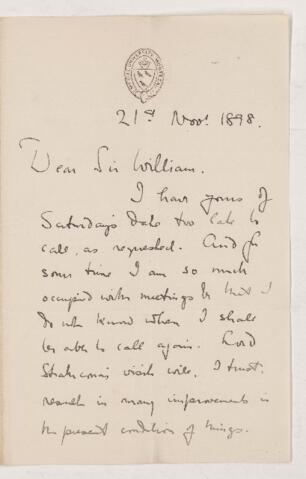 21st Novr 1898.
Dear Sir William.
I have yours of
Saturday's date too late to
call, as requested. And for
some time I am so much
occupied with meetings &c that I
do not know when I shall
be able to call again. Lord
Strathcona's visit will, I trust,
result in many improvements in
the present condition of things.